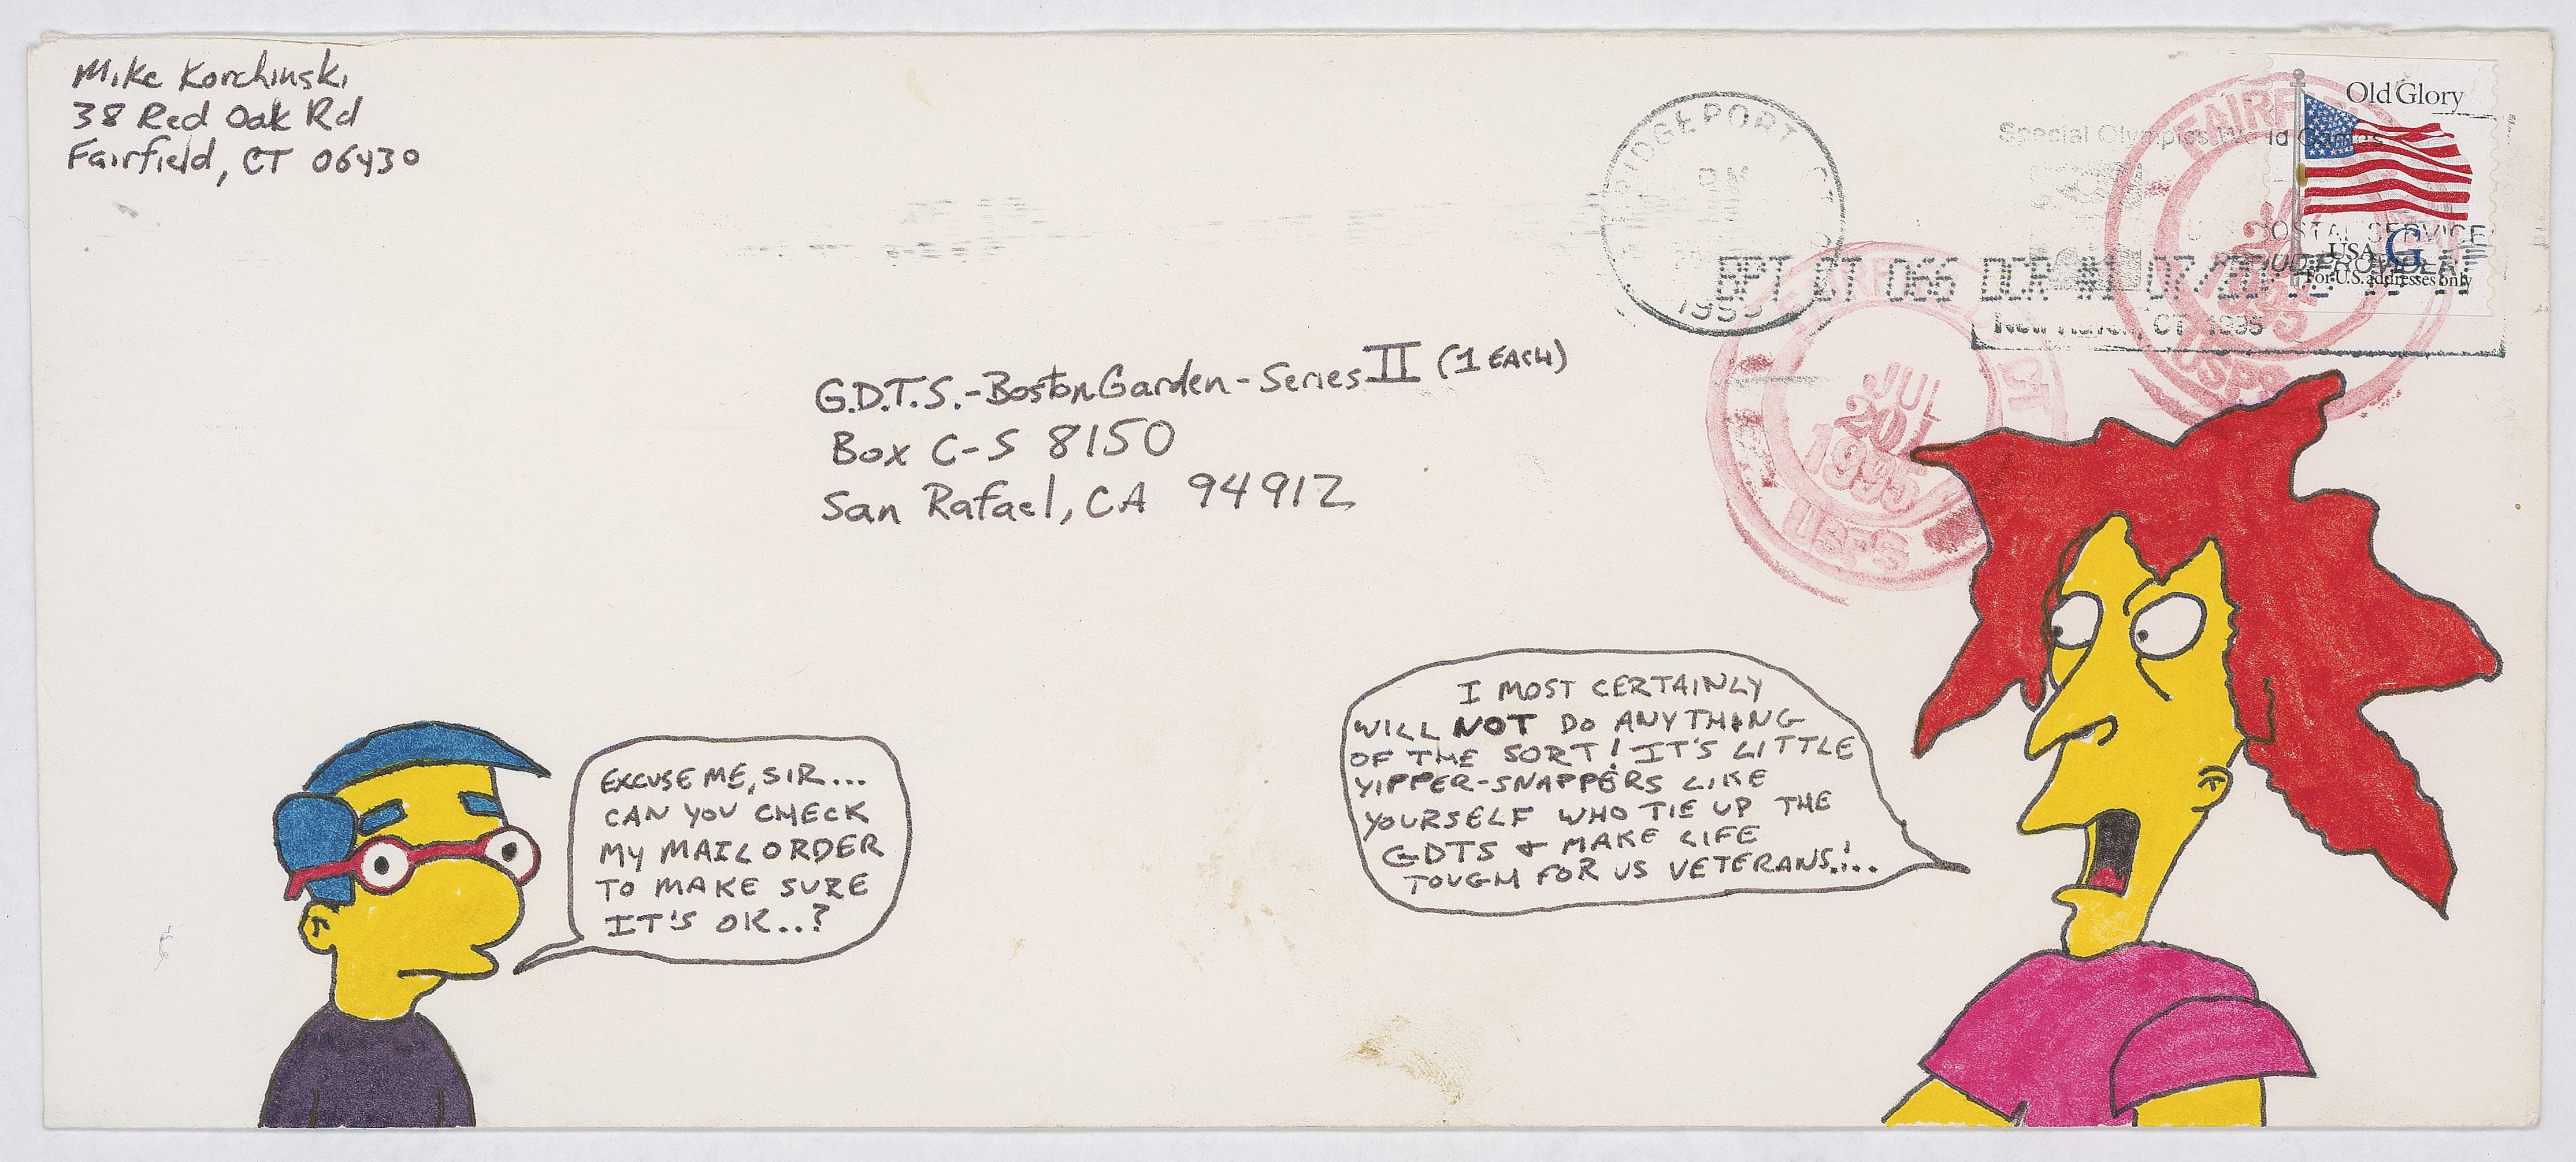 Mike Korchinski
38 Red Oak Rd
Fairfield, CT 06430
BRIDGEPORT CT
PM
1995
Special Olympics World Games
Old Glory
USA G
For U.S. addresses only
POSTAL SERVICE
BPT CT 066 DCR #1 07/20
New Haven, CT 1995
FAIRF
JUL
20
1995
USPS
CT
JUL
20
1995
USPS
G.D.T.S.-Boston Garden-Series II (1 EACH)
Box C-S 8150
San Rafael, CA 94912
EXCUSE ME, SIR...
CAN YOU CHECK
MY MAIL ORDER
TO MAKE SURE
IT'S OK...?
I MOST CERTAINLY
WILL NOT DO ANYTHING
OF THE SORT! IT'S LITTLE
YIPPER-SNAPPERS LIKE
YOURSELF WHO TIE UP THE
GDTS & MAKE LIFE
TOUGH FOR US VETERANS!...